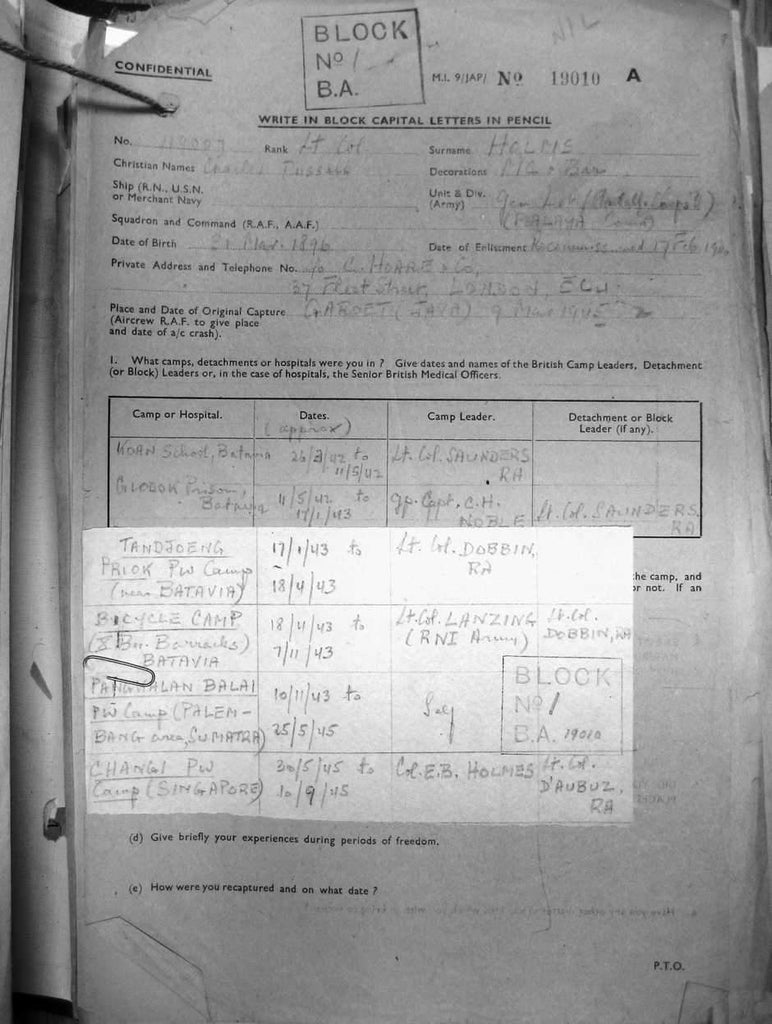 BLOCK
No 1
B.A.
NIL
CONFIDENTIAL
M.I. 9/JAP/ No 19010 A
WRITE IN BLOCK CAPITAL LETTERS IN PENCIL
No. Rank Lt Col Surname HOLMS
Christian Names Charles Decorations MC & Bar
Ship (R.N., U.S.N.
or Merchant Navy
Unit & Div.
(Army) Gen List
(MALAYA Comd)
Squadron and Command (R.A.F., A.A.F.)
Date of Birth 21 Mar. 1896 Date of Enlistment 17 Feb
Private Address and Telephone No. c/o C. HOARE & Co,
37 Fleet Street, LONDON, EC4
Place and Date of Original Capture GAROET (JAVA) 9 Mar
(Aircrew R.A.F. to give place
and date of a/c crash).
1. What camps, detachments or hospitals were you in ? Give dates and names of the British Camp Leaders, Detachment
(or Block) Leaders or, in the case of hospitals, the Senior British Medical Officers.
Camp or Hospital. Dates. Camp Leader. Detachment or Block
(approx) Leader (if any).
KOAN School, Batavia 26/3/42 to Lt. Col. SAUNDERS
11/5/42 RA
GLODOK Prison, 11/5/42 to Gp. Capt. C.H.
Batavia 17/1/43 NOBLE Lt. Col. SAUNDERS,
RA
TANDJOENG 17/1/43 to Lt. Col. DOBBIN,
PRIOK PW Camp RA
(near BATAVIA) 18/4/43
he camp, and
or not. If an
BICYCLE CAMP 18/4/43 to Lt. Col. LANZING Lt. Col.
(Bn. Barracks) (RNI Army) DOBBIN, RA
BATAVIA 7/11/43
PANGKALAN BALAI 10/11/43 to
PW Camp (PALEM- Self
BANG area, SUMATRA) 25/5/45
BLOCK
No 1
B.A. 19010
CHANGI PW 30/5/45 to Col. E.B. HOLMES Lt. Col.
Camp (SINGAPORE) 10/9/45 D'AUBUZ,
RA
(d) Give briefly your experiences during periods of freedom.
(e) How were you recaptured and on what date ?
P.T.O.